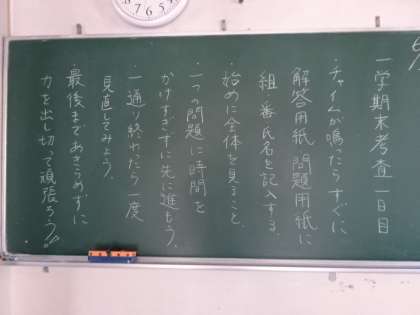 一学期末考査一日目
・チャイムが鳴ったらすぐに
解答用紙、問題用紙に
組、番、氏名を記入する。
・始めに全体を見ること。
・一つの問題に時間を
かけすぎずに先に進もう。
・一通り終わたら一度
見直してみよう。
・最後まであきらめずに
力を出し切って頑張ろう!!
5
6
7
8
9